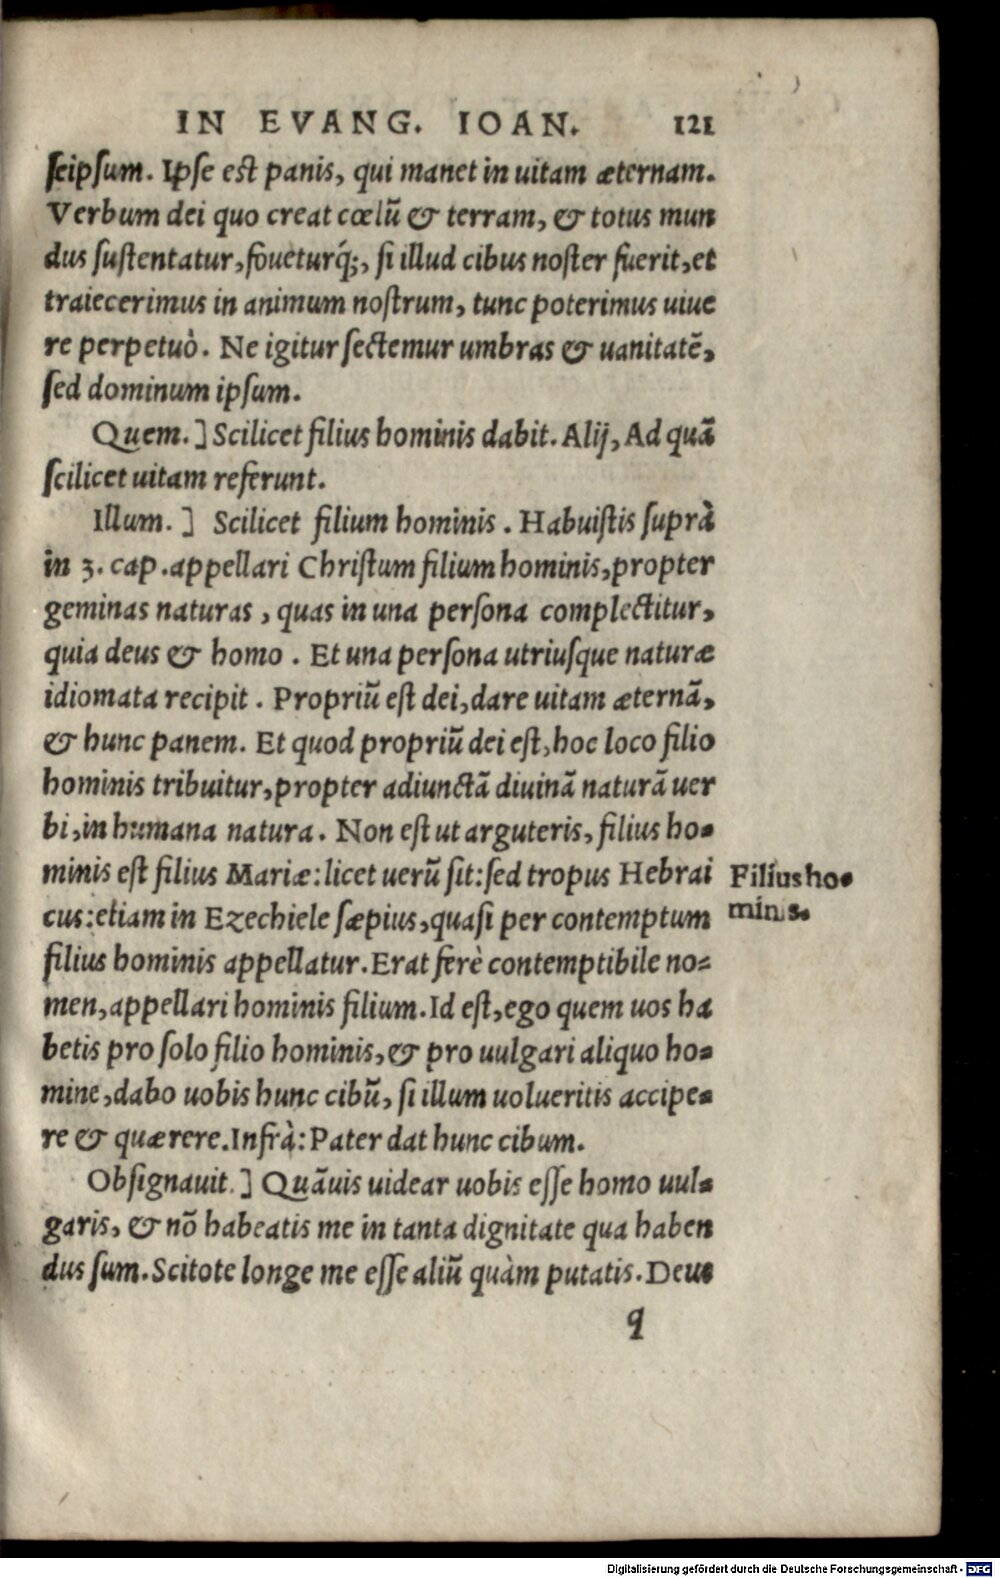 IN EVANG. IOAN. 121
seipsum. Ipse est panis, qui manet in uitam æternam.
Verbum dei quo creat cœlũ & terram, & totus mun
dus sustentatur, foueturq́;, si illud cibus noster fuerit, et
traiecerimus in animum nostrum, tunc poterimus uiue
re perpetuò. Ne igitur sectemur umbras & uanitatẽ,
sed dominum ipsum.
Quem.] Scilicet filius hominis dabit. Alij, Ad quã
scilicet uitam referunt.
Illum.] Scilicet filium hominis. Habuistis suprà
in 3. cap. appellari Christum filium hominis, propter
geminas naturas, quas in una persona complectitur,
quia deus & homo. Et una persona utriusque naturæ
idiomata recipit. Propriũ est dei, dare uitam æternã,
& hunc panem. Et quod propriũ dei est, hoc loco filio
hominis tribuitur, propter adiunctã diuinã naturã uer
bi, in humana natura. Non est ut arguteris, filius ho-
minis est filius Mariæ: licet uerũ sit: sed tropus Hebrai
cus: etiam in Ezechiele sæpius, quasi per contemptum
filius hominis appellatur. Erat ferè contemptibile no-
men, appellari hominis filium. Id est, ego quem uos ha
betis pro solo filio hominis, & pro uulgari aliquo ho-
mine, dabo uobis hunc cibũ, si illum uolueritis accipe-
re & quærere. Infrà: Pater dat hunc cibum.
Obsignauit.] Quãuis uidear uobis esse homo uul-
garis, & nõ habeatis me in tanta dignitate qua haben
dus sum. Scitote longe me esse aliũ quàm putatis. Deus
q
Filius ho-
minis.
Digitalisierung gefördert durch die Deutsche Forschungsgemeinschaft - DFG